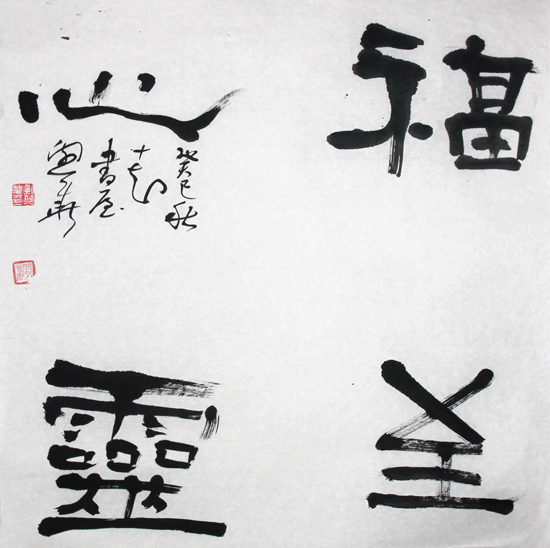 福至
心靈
癸巳秋
十
書屋